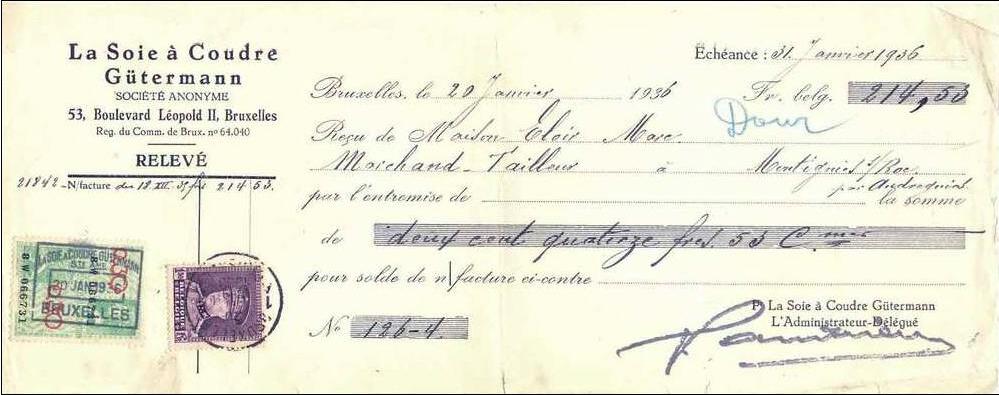 La Soie à Coudre
Gütermann
SOCIÉTÉ ANONYME
53, Boulevard Léopold II, Bruxelles
Reg. du Comm. de Brux. nº 64.040
RELEVÉ
21842 - N/facture du 18 XII 35 frs 214 53.
Échéance : 31 Janvier 1936
Bruxelles, le 20 Janvier 1936 Fr. belg. 214,53
Dour
Reçu de Maison Eloir Marc
Marchand-Tailleur à Montignies s/Roc
par Audregnies
par l'entremise de la somme
de deux cent quatorze frs. 53 Cmes
pour solde de n/facture ci-contre
No 126-4
P. La Soie à Coudre Gütermann
L'Administrateur-Délégué
LA SOIE À COUDRE GUTERMANN
STÉ AME
20 JAN 1936
BRUXELLES
8 W 066731